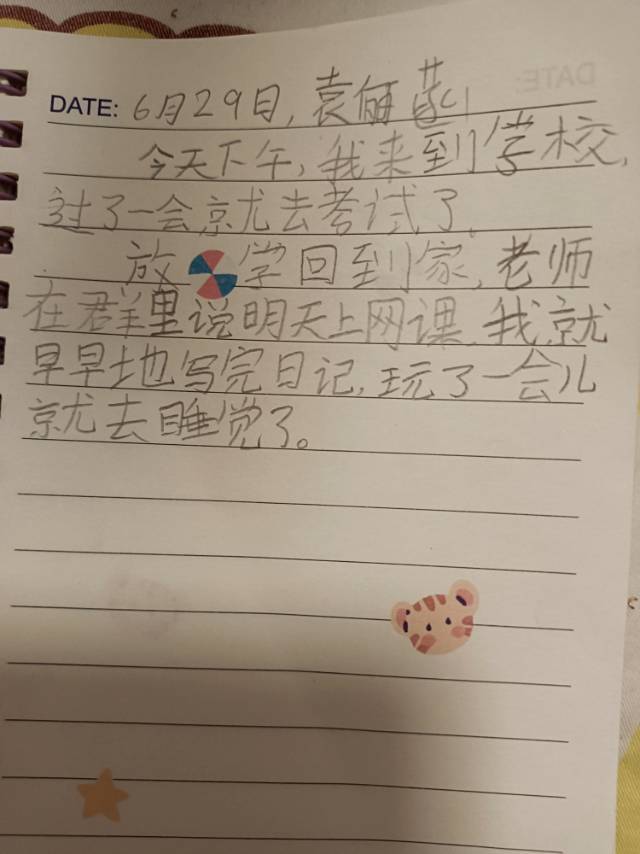 DATE: 6月29日,袁俪
今天下午,我来到学校,
过了一会就去考试了,
放学回到家,老师
在群里说明天上网课,我就
早早地写完日记,玩了一会儿
就去睡觉了。